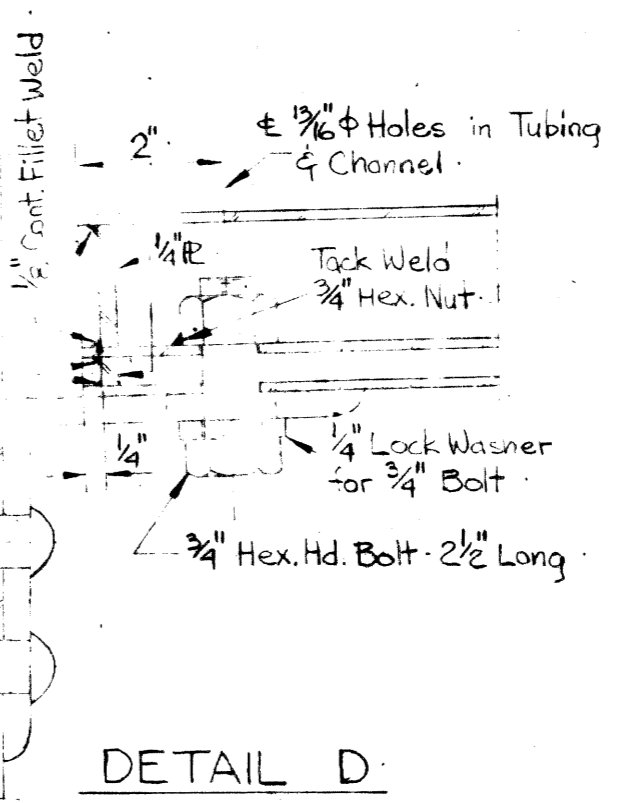 1/8" Cont. Fillet Weld
2"
℄ 13/16" ϕ Holes in Tubing
& Channel.
1/4" ℄
Tack Weld
3/4" Hex. Nut.
1/4"
1/4" Lock Washer
for 3/4" Bolt.
3/4" Hex. Hd. Bolt - 2 1/2" Long.
DETAIL D.